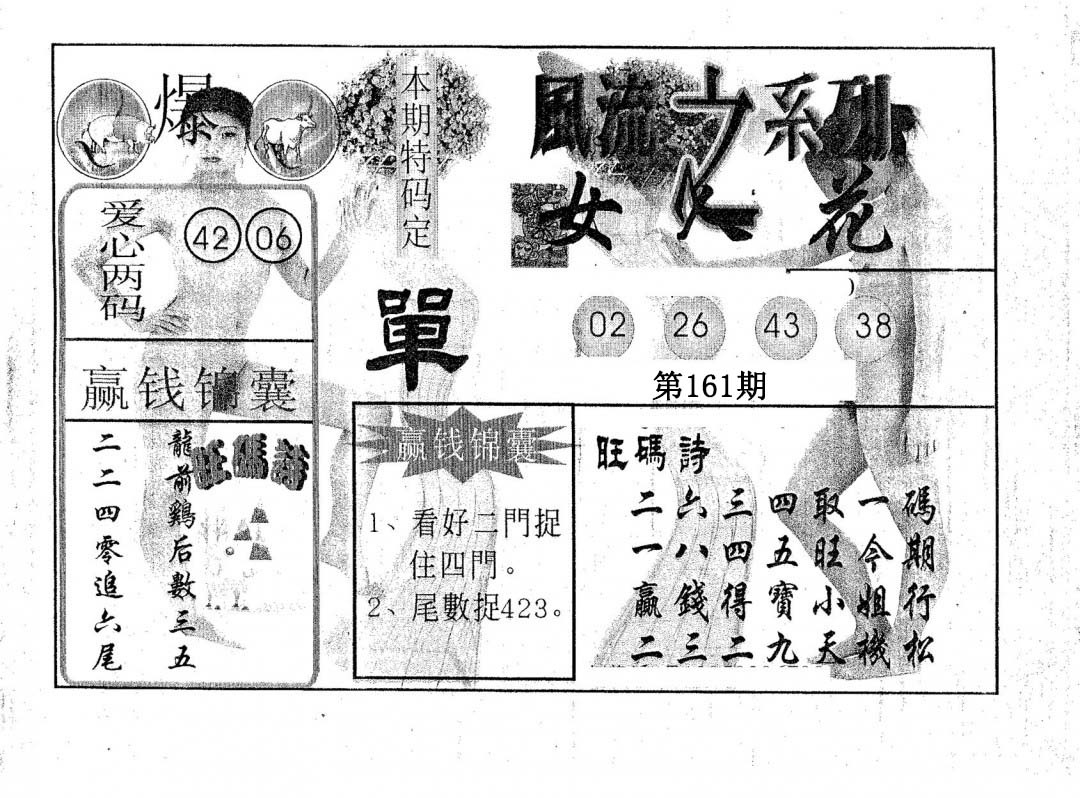 爆
爱心两码
42 06
赢钱锦囊
旺碼詩
龍前鷄后數三五
二二四零追六尾
本期特码定
單
赢钱锦囊
1、看好二門捉
住四門。
2、尾數捉423。
風流 系列
女 花
02 26 43 38
第161期
旺碼詩
二六三四取一碼
一八四五旺今期
贏錢得寶小姐行
二三二九天機松